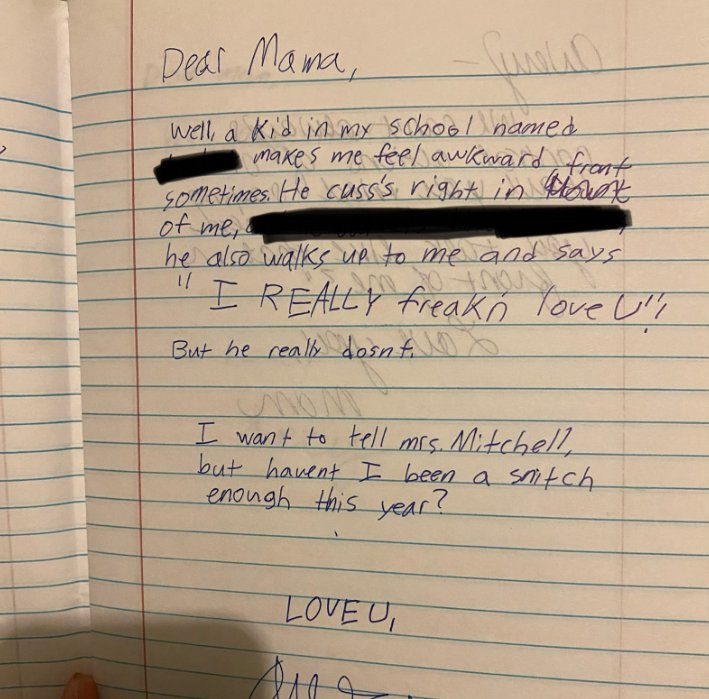 Dear Mama,
Well, a kid in my school named
makes me feel awkward
sometimes. He cuss's right in front
of me,
he also walks up to me and says
" I REALLY freakn' love U"!
But he really dosnt.
I want to tell mrs. Mitchell,
but havent I been a snitch
enough this year?
LOVE U,